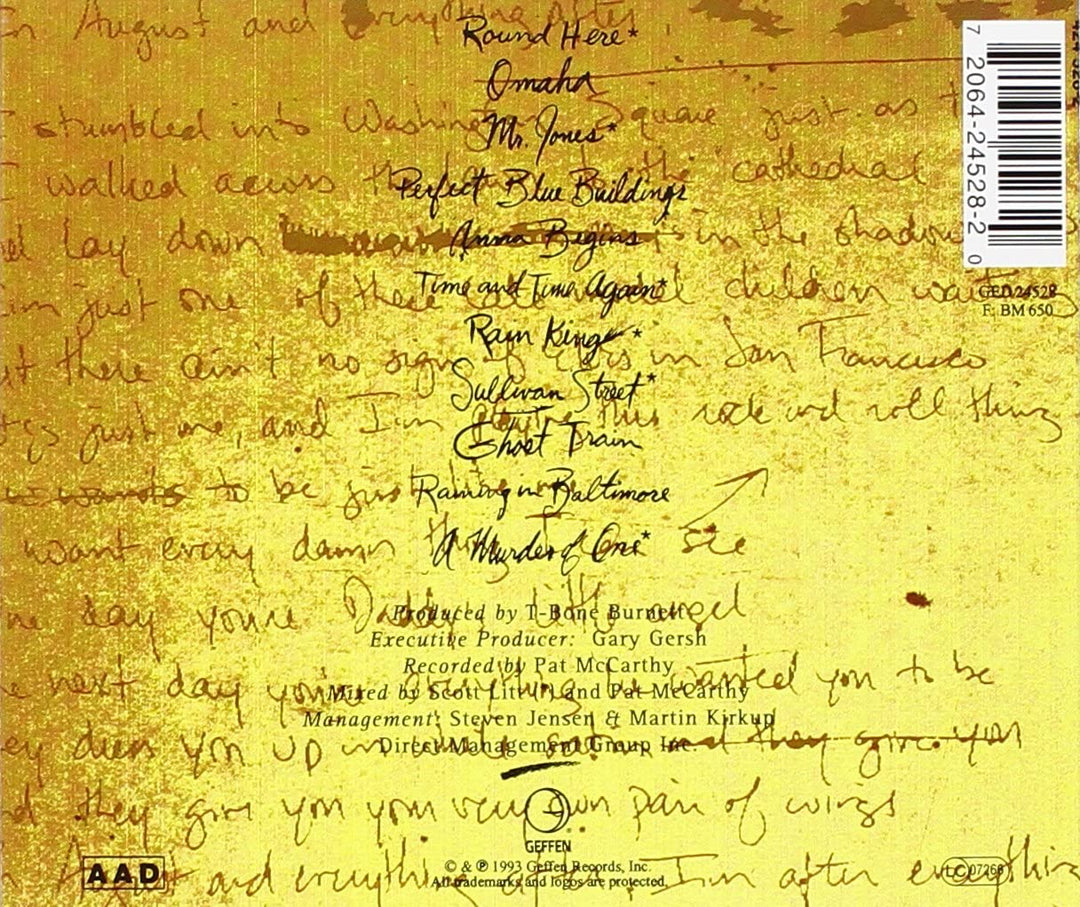 In August and Everything After,
Round Here*
Omaha
I stumbled into Washington Square just as t
Mr. Jones*
I walked across the to the cathedral
Perfect Blue Buildings
lay down in the shadow
Anna Begins
I'm just one of these children waiting
Time and Time Again*
Rain King*
there ain't no sign of in San Francisco
Sullivan Street*
just me, and I'm this rock and roll thing
Ghost Train
wants to be just
Raining in Baltimore
want every damn thing I see
A Murder of One*
day you're Daddy's little angel
Produced by T-Bone Burnett
Executive Producer: Gary Gersh
Recorded by Pat McCarthy
next day you're everything he wanted you to be
Mixed by Scott Litt (*) and Pat McCarthy
Management: Steven Jensen & Martin Kirkup
Direct Management Group Inc.
dress you up in and they give you
they give you your very own pair of wings
GEFFEN
August and everything I'm after everything
© & ℗ 1993 Geffen Records, Inc.
All trademarks and logos are protected.
AAD
LC 07266
7 20642-4528-2 0
GED 24528
F: BM 650